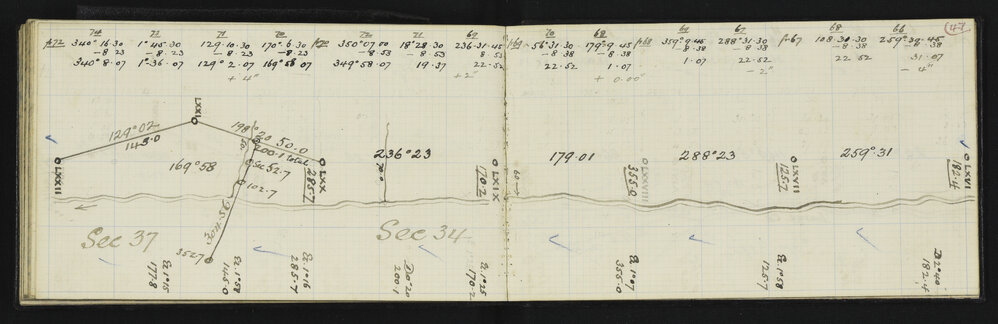 74 73 71 70 72 71 69 70 68 69 67 68 66
p72 340°16.30 1°45.30 129.10.30 170°6.30 350°07.00 18°28.30 236.31.45 p69 56°31.30 179°9.45 p68 359°9.45 288°31.30 p67 108.30.30 259°39.45 47
-8.23 -8.23 -8.23 -8.23 -8.53 -8.53 8.53 -8.38 -8.38 -8.38 -8.38 -8.38 -8.38
340°8.07 1°36.07 129°2.07 169°58.07 349°58.07 19.37 22.52 22.52 1.07 1.07 22.52 22.52 31.07
+4" +2" +0.00" -2" -4"
LXXI
129°02
143.0
198
20
50.0
200.1 Total
LXXII
169°58
52.7
102.7
LXX
285.7
236°23
LXIX
170.2
60
179.01
LXVIII
355.0
288°23
LXVII
125.7
259°31
LXVI
182.4
Sec 37
352.7
Sec 34
1°15
177.8
1°58
145.0
1°16
285.7
0°20
200.1
1°15
170.2
1°07
355.0
1°58
125.7
2°40
182.4